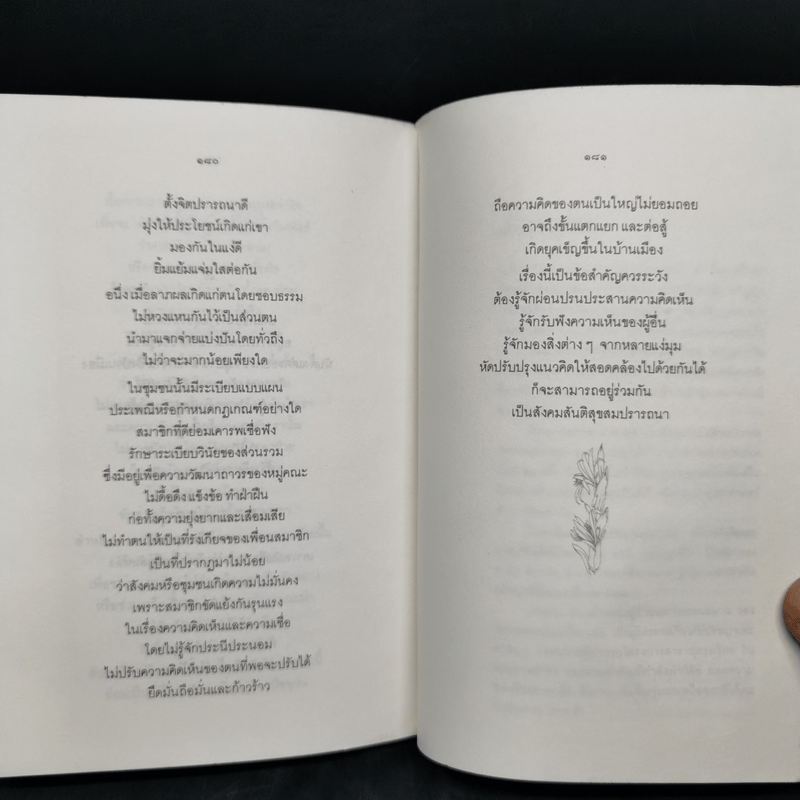 ๑๘๐
ตั้งจิตปรารถนาดี
มุ่งให้ประโยชน์เกิดแก่เขา
มองกันในแง่ดี
ยิ้มแย้มแจ่มใสต่อกัน
อนึ่ง เมื่อลาภผลเกิดแก่ตนโดยชอบธรรม
ไม่หวงแหนกันไว้เป็นส่วนตน
นำมาแจกจ่ายแบ่งปันโดยทั่วถึง
ไม่ว่าจะมากน้อยเพียงใด
ในชุมชนนั้นมีระเบียบแบบแผน
ประเพณีหรือกำหนดกฎเกณฑ์อย่างใด
สมาชิกที่ดีย่อมเคารพเชื่อฟัง
รักษาระเบียบวินัยของส่วนรวม
ซึ่งมีอยู่เพื่อความวัฒนาถาวรของหมู่คณะ
ไม่ดื้อดึง แข็งข้อ ทำฝ่าฝืน
ก่อทั้งความยุ่งยากและเสื่อมเสีย
ไม่ทำตนให้เป็นที่รังเกียจของเพื่อนสมาชิก
เป็นที่ปรากฏมาไม่น้อย
ว่าสังคมหรือชุมชนเกิดความไม่มั่นคง
เพราะสมาชิกขัดแย้งกันรุนแรง
ในเรื่องความคิดเห็นและความเชื่อ
โดยไม่รู้จักประนีประนอม
ไม่ปรับความคิดเห็นของตนที่พอจะปรับได้
ยึดมั่นถือมั่นและก้าวร้าว
๑๘๑
ถือความคิดของตนเป็นใหญ่ไม่ยอมถอย
อาจถึงขั้นแตกแยก และต่อสู้
เกิดยุคเข็ญขึ้นในบ้านเมือง
เรื่องนี้เป็นข้อสำคัญควรระวัง
ต้องรู้จักผ่อนปรนประสานความคิดเห็น
รู้จักรับฟังความเห็นของผู้อื่น
รู้จักมองสิ่งต่าง ๆ จากหลายแง่มุม
หัดปรับปรุงแนวคิดให้สอดคล้องไปด้วยกันได้
ก็จะสามารถอยู่ร่วมกัน
เป็นสังคมสันติสุขสมปรารถนา